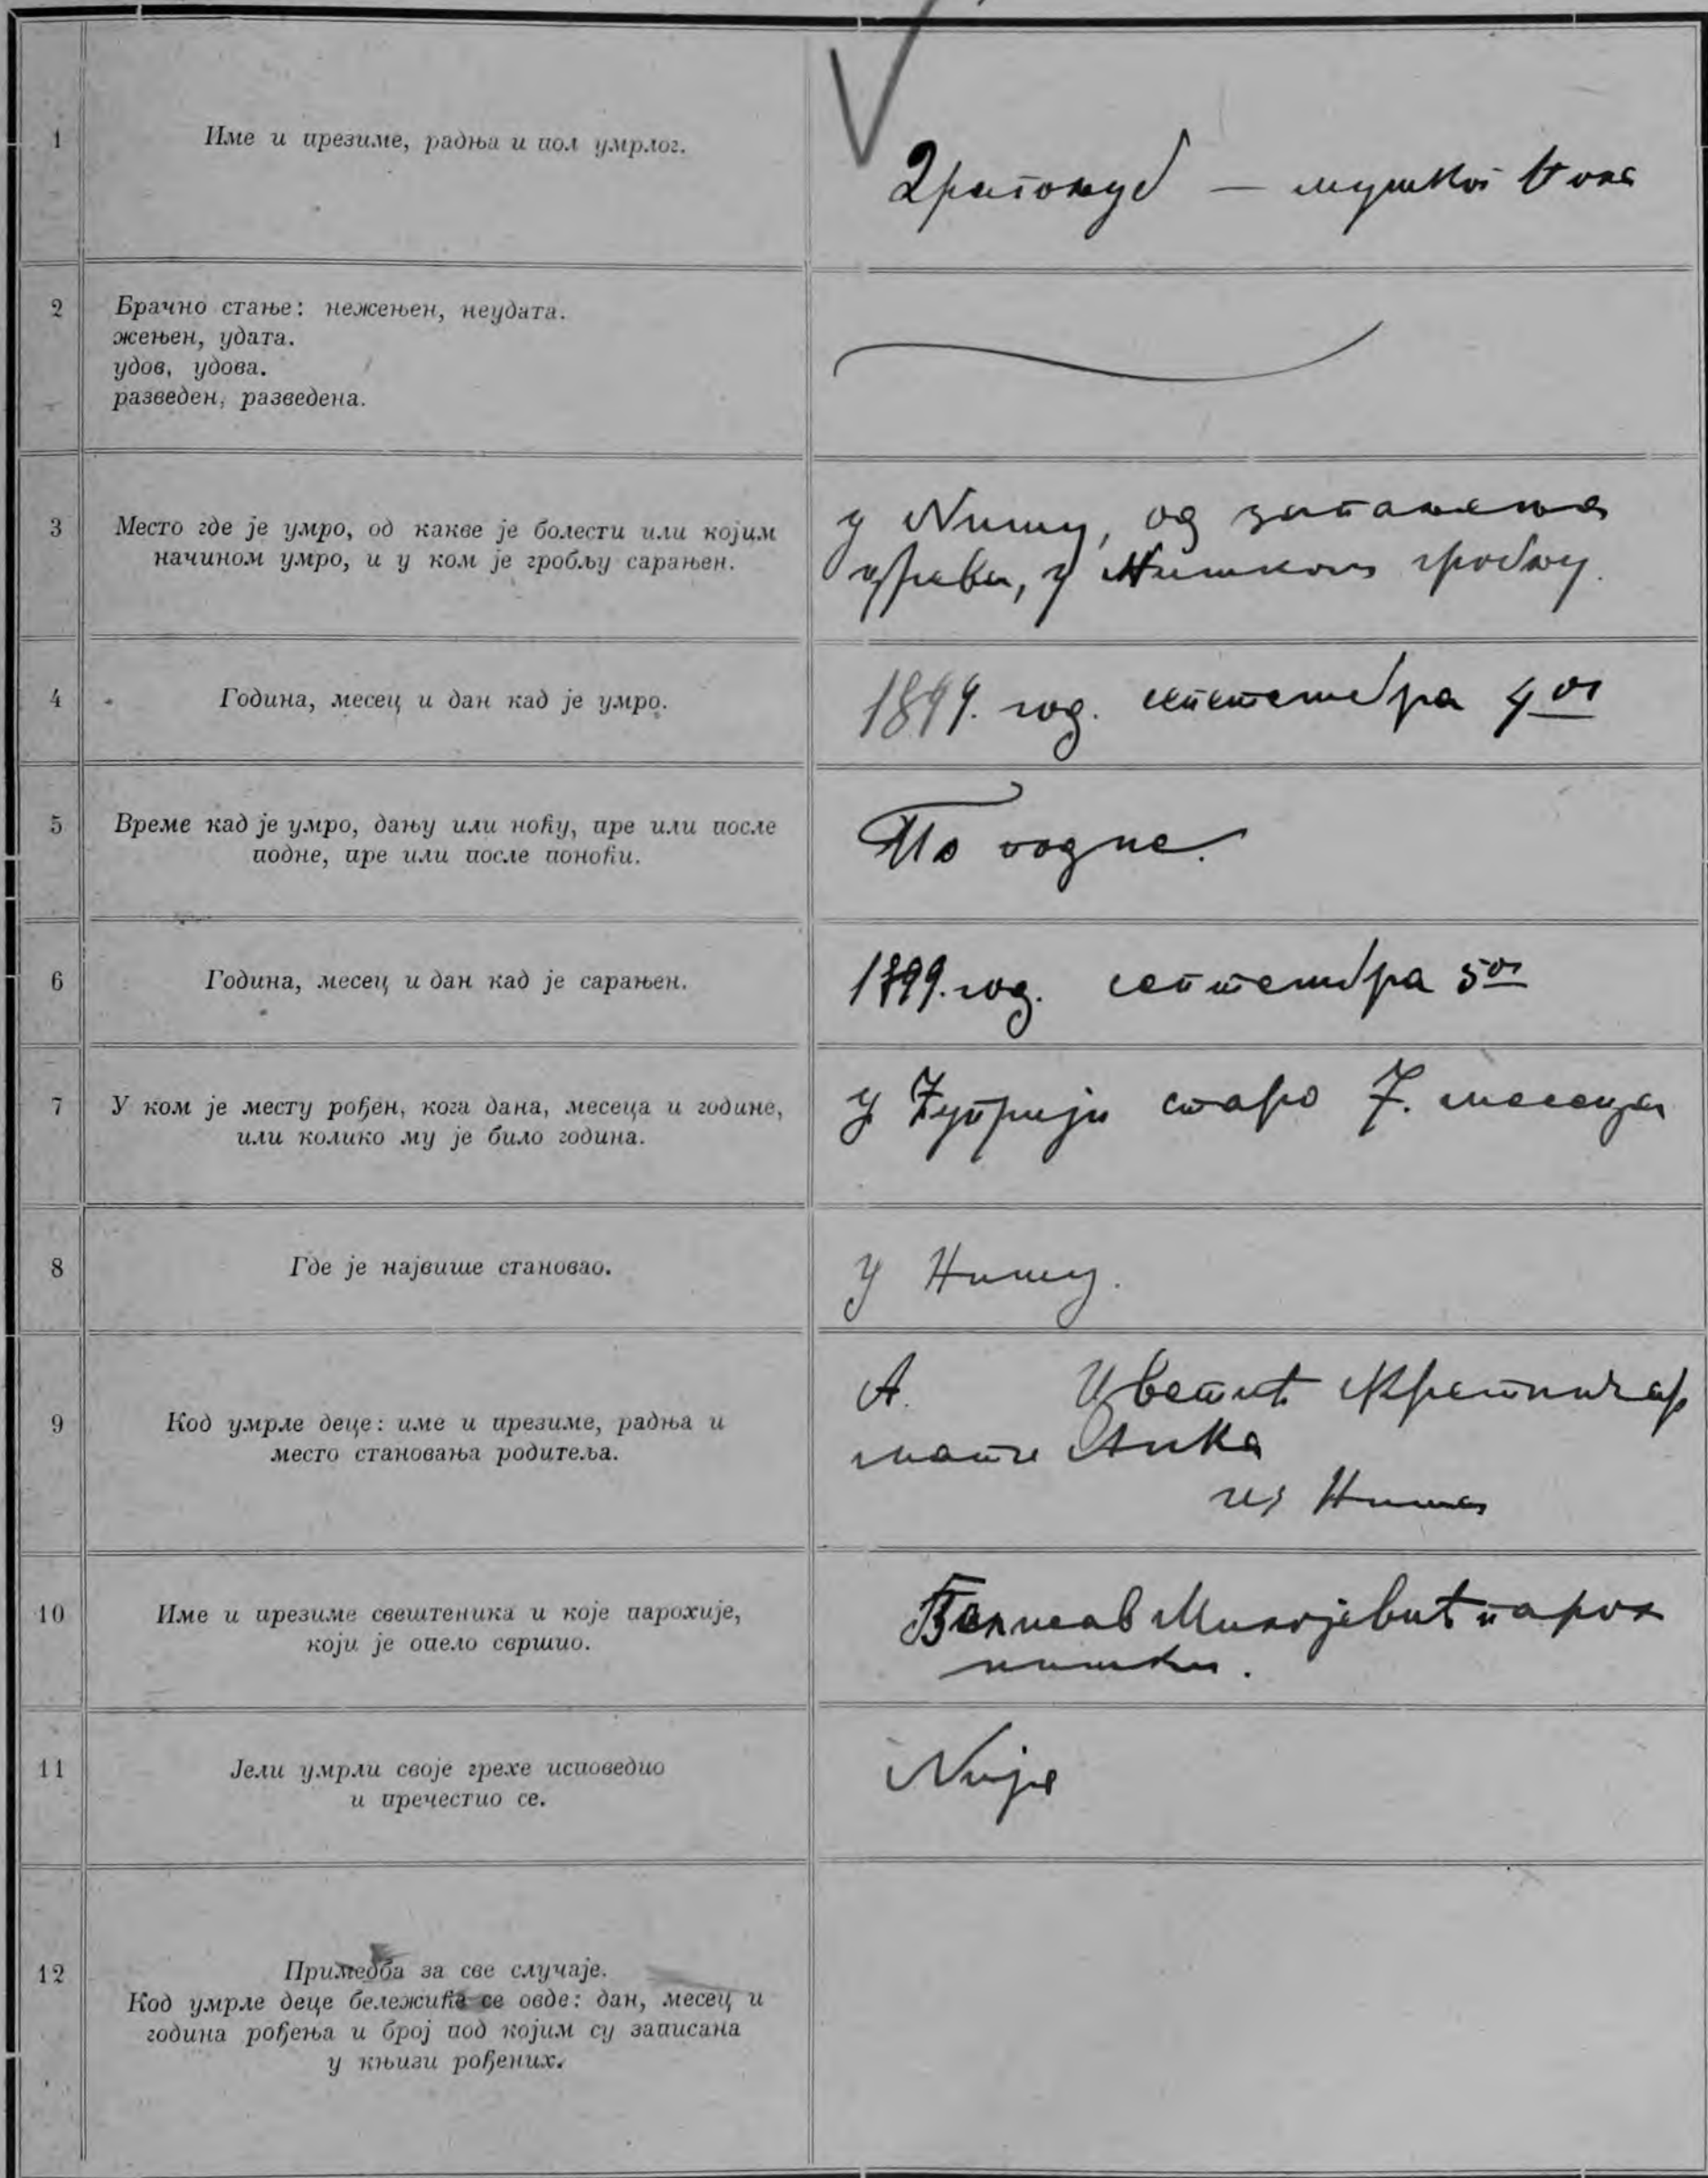 1
Име и презиме, радња и пол умрлог.
Драгољуб — мушког пола
2
Брачно стање: нежењен, неудата.
жењен, удата.
удов, удова.
разведен, разведена.
3
Место где је умро, од какве је болести или којим
начином умро, и у ком је гробљу сарањен.
у Нишу, од запалења
црева, у Нишком гробљу.
4
Година, месец и дан кад је умро.
1899. год. септембра 4ог
5
Време кад је умро, дању или ноћу, пре или после
подне, пре или после поноћи.
По подне.
6
Година, месец и дан кад је сарањен.
1899. год. септембра 5ог
7
У ком је месту рођен, кога дана, месеца и године,
или колико му је било година.
у Ћуприји старо 7. месеца
8
Где је највише становао.
У Нишу.
9
Код умрле деце: име и презиме, радња и
место становања родитеља.
А. Цветић
мати Анка
из Ниша
10
Име и презиме свештеника и које парохије,
који је опело свршио.
Милојевић парох
нишки.
11
Јели умрли своје грехе исповедио
и пречестио се.
Није
12
Примедба за све случаје.
Код умрле деце бележиће се овде: дан, месец и
година рођења и број под којим су записана
у књизи рођених.